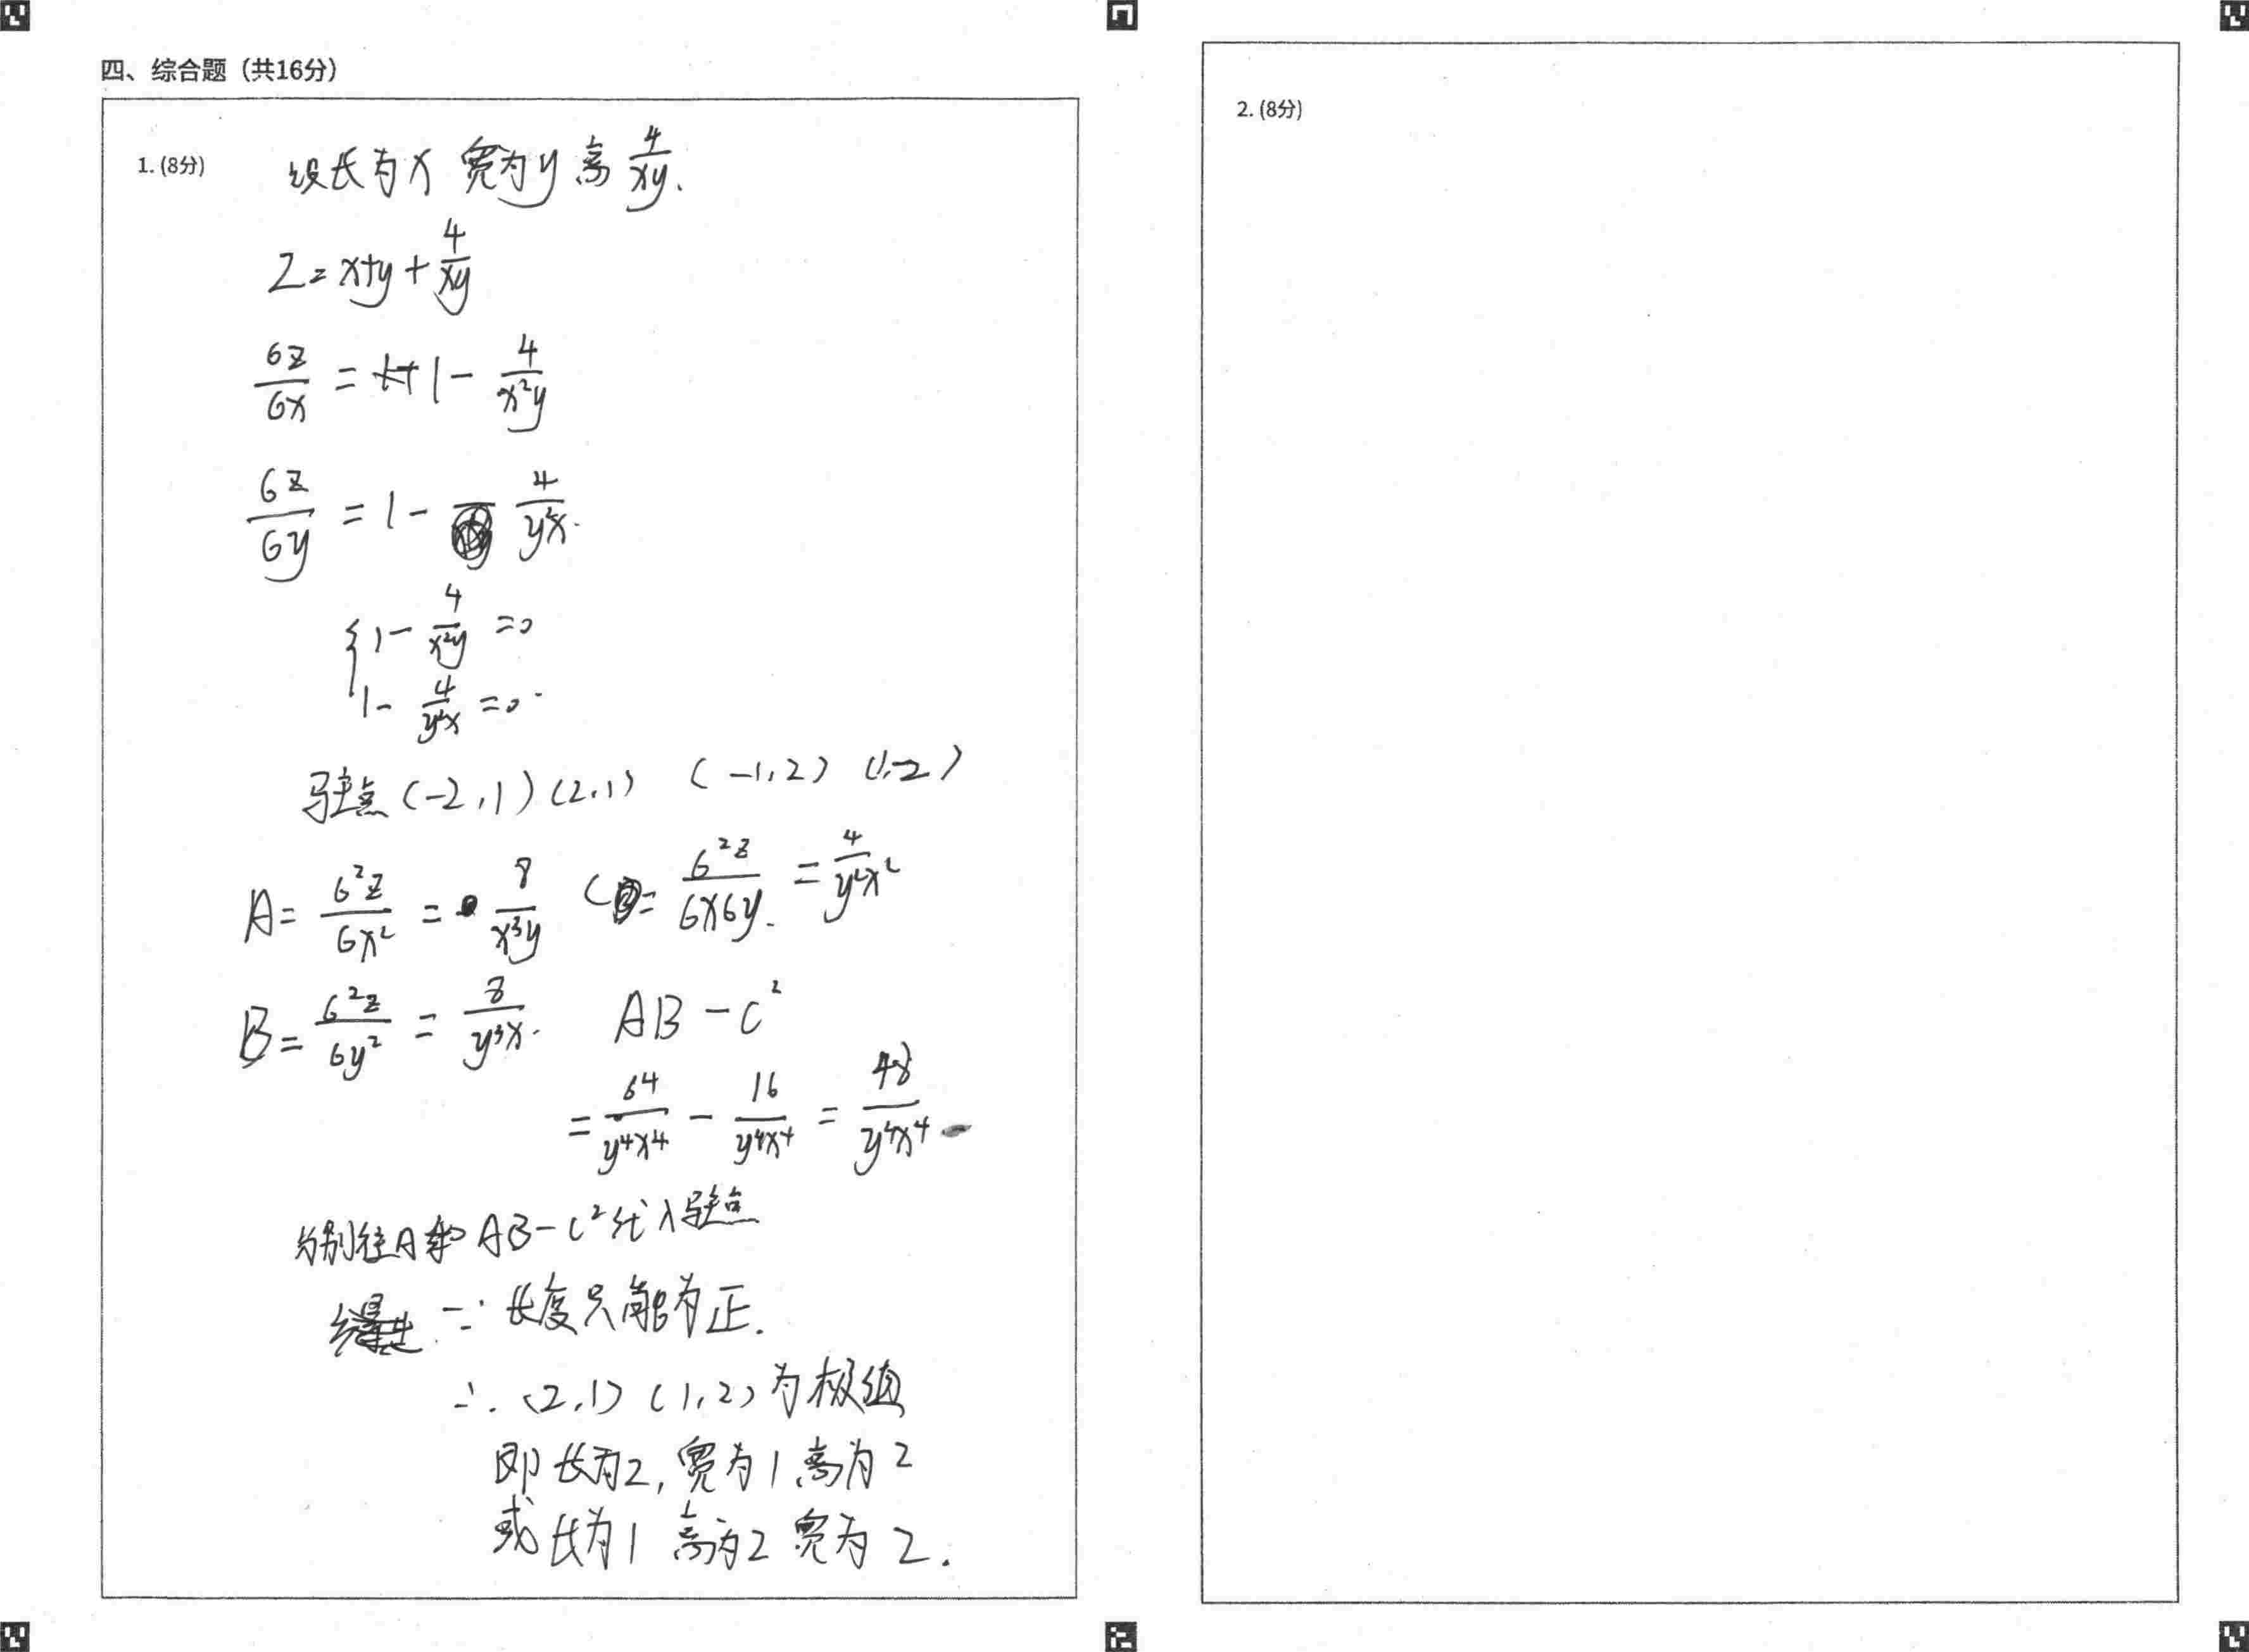 四、综合题（共16分）
1. (8分)
设长为x 宽为y 高 4/xy.
Z = x+y + 4/xy
6z/6x = 1 - 4/x²y
6z/6y = 1 - 4/y²x.
{ 1 - 4/x²y = 0
1 - 4/y²x = 0.
驻点 (-2,1) (2,1) (-1,2) (1,-2)
A = 6²z/6x² = 8/x³y C = 6²z/6x6y. = 4/y²x²
B = 6²z/6y² = 8/y³x. AB - C²
= 64/y⁴x⁴ - 16/y⁴x⁴ = 48/y⁴x⁴
分别往A和 AB-C²代入驻点
∵ 长度只能为正.
∴ (2,1) (1,2) 为极值
即 长为2, 宽为1 高为2
或 长为1 高为2 宽为2.
2. (8分)